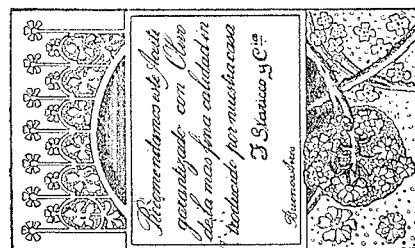 Recomendamos este Aceite
garantizado con Olivo
de la mas fina calidad in
troducido por nuestra casa
F Staricco y Cia
Buenos Aires